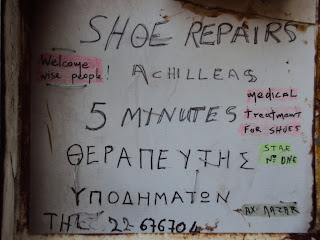 SHOE REPAIRS
Welcome
wise people!
ACHILLEAS
5 MINUTES
medical
treatment
FOR SHOES
ΘΕΡΑΠΕΥΤΗΣ
STAR
Nº ONE
ΥΠΟΔΗΜΑΤΩΝ
ΤΗΛ 22-676704